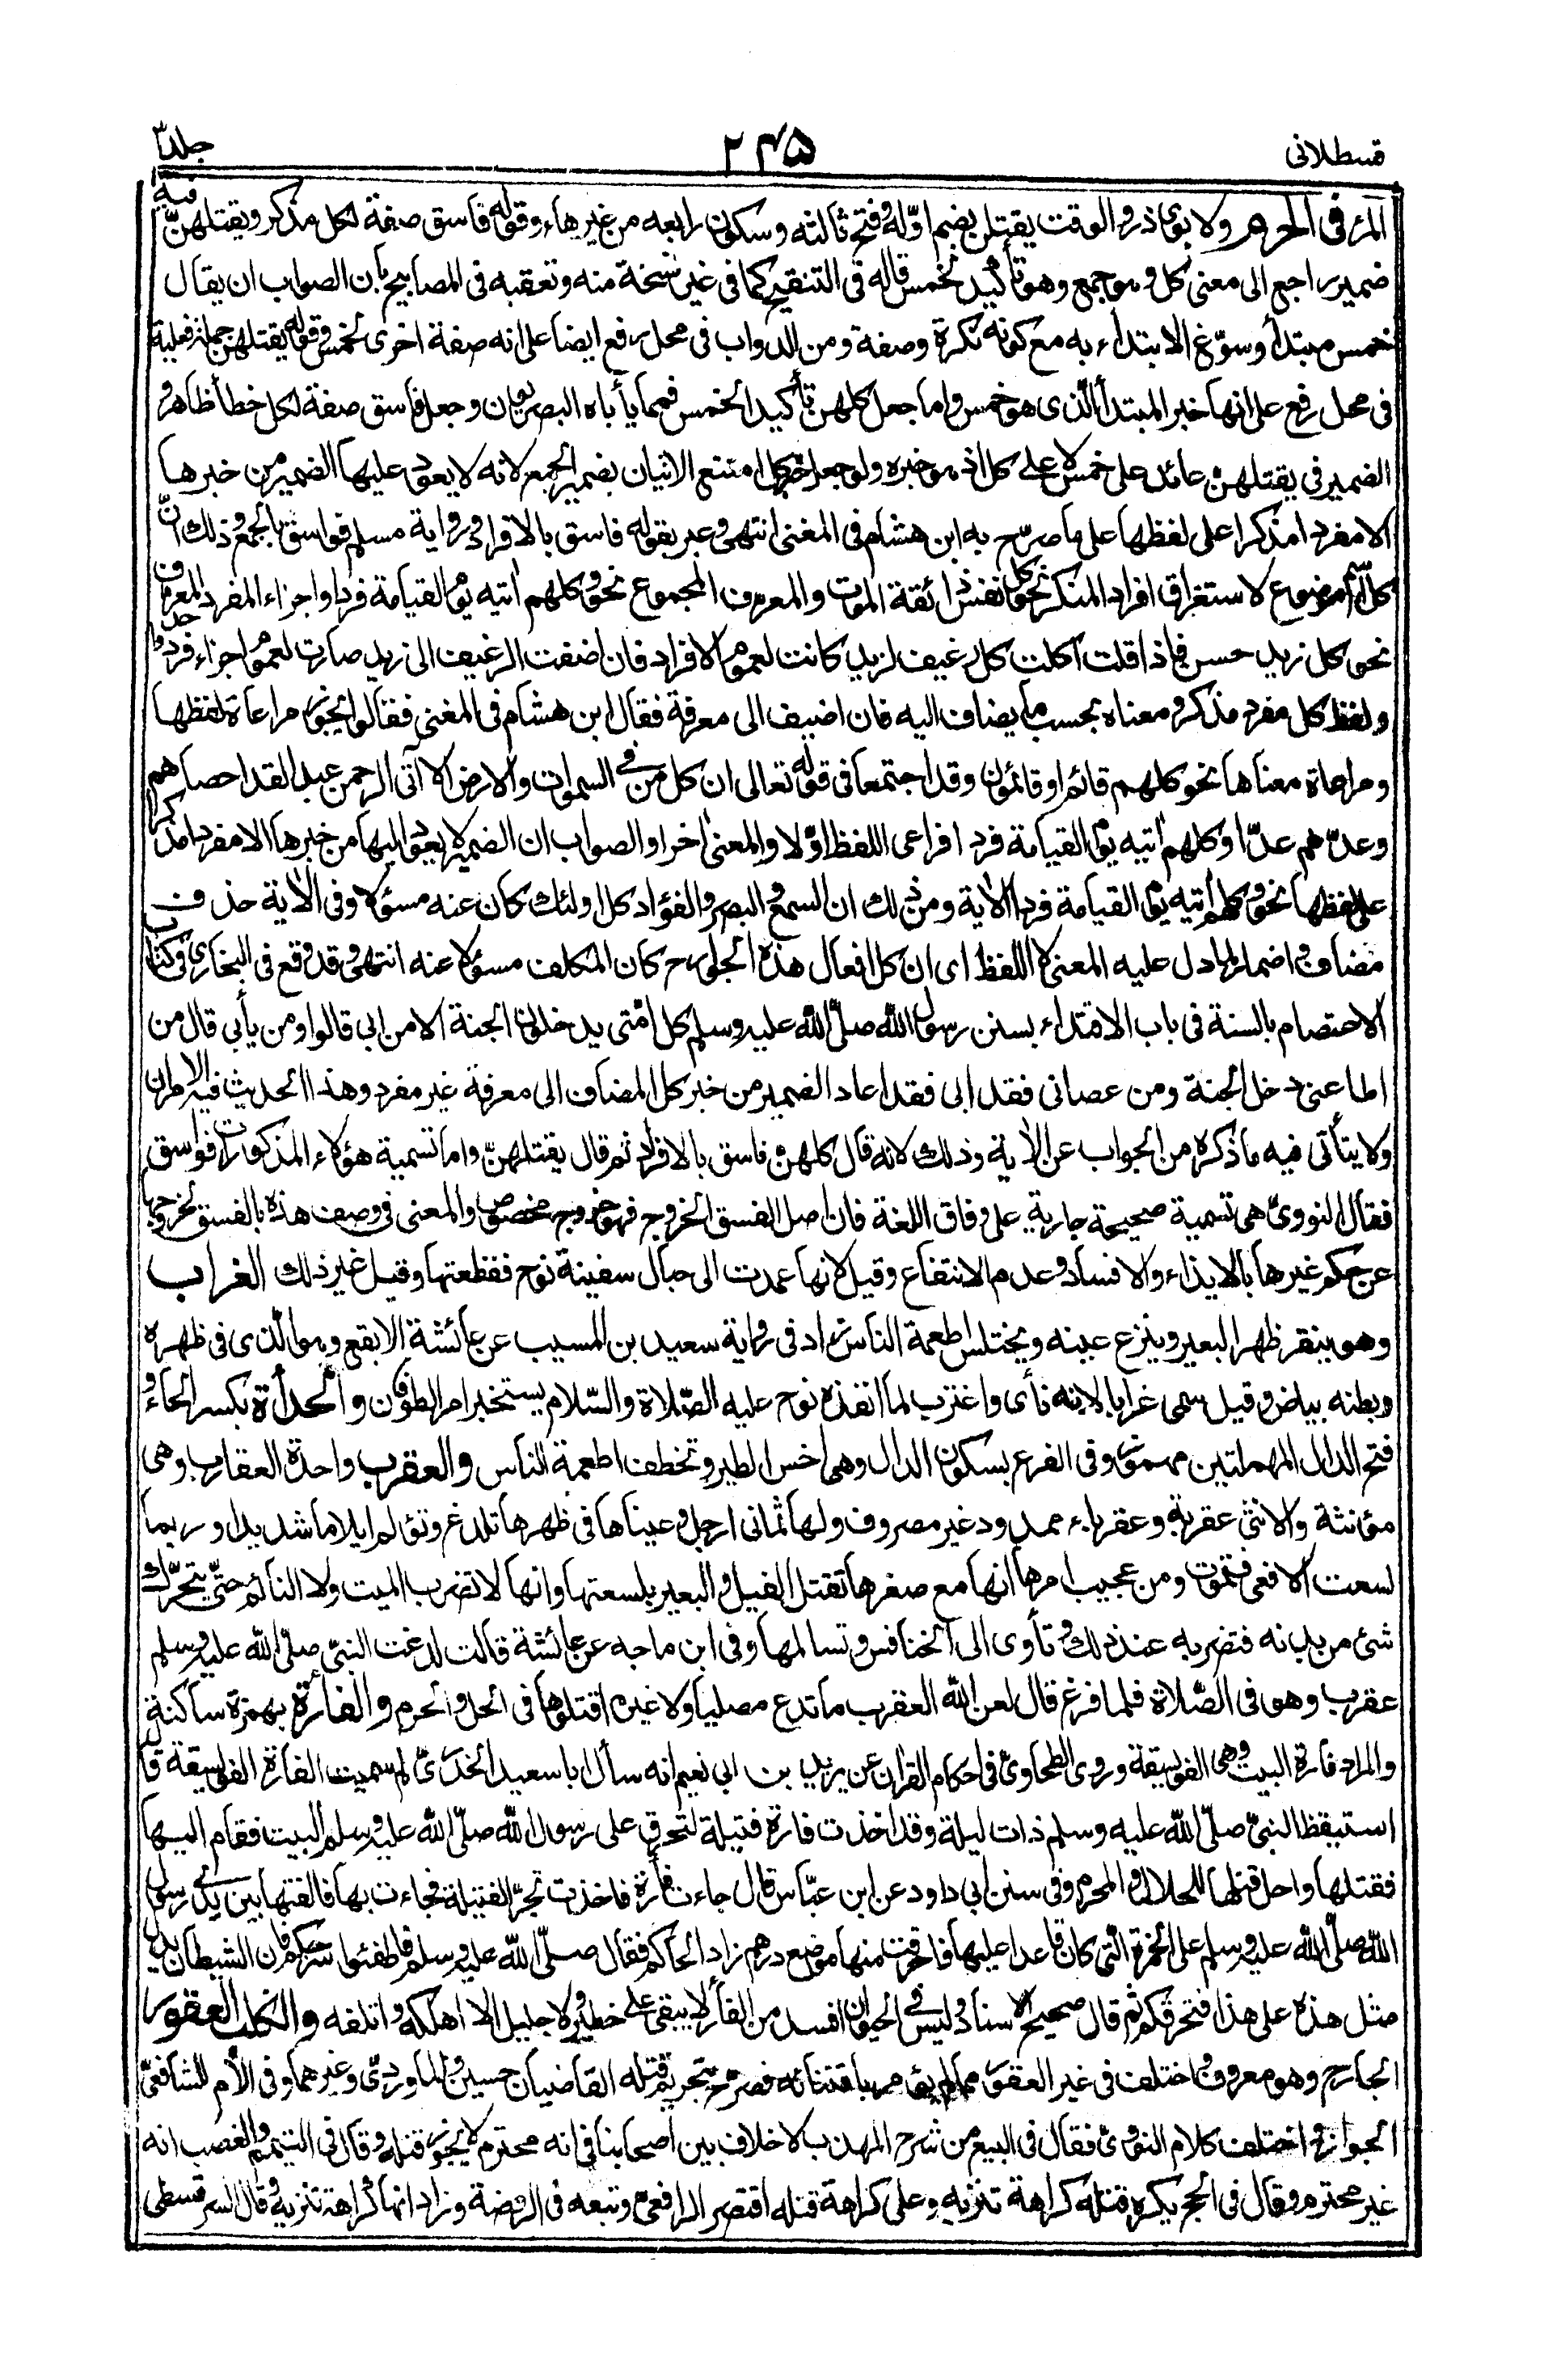 قسطلانى
٢٤٥
جلد٣
المرء فى الحرم ولابوى ذر والوقت يقتلن بضم اوّله وفتح ثالثه وسكون رابعه من غيرهاء وقوله فاسق صفة لكل مذكر ويقتلهنّ فيه
ضمير راجع الى معنى كل وهو جمع وهو تأكيد لخمس قاله فى التنقيح كما فى غير نسخة منه وتعقبه فى المصابيح بان الصواب ان يقال
خمس مبتدأ وسوّغ الابتداء به مع كونه نكرة وصفه ومن الدواب فى محل رفع ايضا على انه صفة اخرى لخمس وقوله يقتلهن جملة فعلية
فى محل رفع على انها خبر المبتدأ الذى هو خمس واما جعل كلهن تأكيدا لخمس فمما يأباه البصريون وجعل فاسق صفة لكل خطأ ظاهر و
الضمير فى يقتلهن عائد على خمس لا على كل اذ هو خبره ولو جعل خبر كل امتنع الاتيان بضمير الجمع لانه لا يعود عليها الضمير من خبرها
الا مفردا مذكرا على لفظها على ما صرّح به ابن هشام فى المغنى انتهى وعبر بقوله فاسق بالافراد ورواية مسلم فواسق بالجمع وذلك انّ
كل اسم موضوع لاستغراق افراد المنكر نحو كل نفس ذائقة الموت والمعرف المجموع نحو وكلهم اتيه يوم القيامة فردا واجزاء المفرد المعرف
نحو كل زيد حسن فاذا قلت اكلت كل رغيف لزيد كانت لعموم الافراد فان اضفت الرغيف الى زيد صارت لعموم اجزاء فرد واحد
ولفظ كل مفرد مذكر ومعناه بحسب ما يضاف اليه فان اضيف الى معرفة فقال ابن هشام فى المغنى فقالوا يجوز مراعاة لفظها
ومراعاة معناها نحو كلهم قائم او قائمون وقد اجتمعا فى قوله تعالى ان كل من فى السموات والارض الا آتى الرحمن عبدا لقد احصاهم
وعدّهم عدّا وكلهم اتيه يوم القيامة فردا فراعى اللفظ اوّلا والمعنى اخرا والصواب ان الضمير لا يعود اليها من خبرها الا مفردا مذكرا
على لفظها نحو وكلهم اتيه يوم القيامة فردا الاية ومن ذلك ان السمع والبصر والفؤاد كل اولئك كان عنه مسؤلا وفى الاية حذف
مضاف واضمار لما دل عليه المعنى لا اللفظ اى ان كل افعال هذه الجوارح كان المكلف مسؤلا عنه انتهى وقد وقع فى البخارى فى كتاب
الاعتصام بالسنة فى باب الاقتداء بسنن رسول الله صلّى الله عليه وسلم كل امّتى يدخلون الجنة الا من ابى قالوا ومن يأبى قال من
اطاعنى دخل الجنة ومن عصانى فقد ابى فقد اعاد الضمير من خبر كل المضاف الى معرفة غير مفرد وهذا الحديث فيه الامران
ولا يتأتى فيه ما ذكره من الجواب عن الاية وذلك لانه قال كلهن فاسق بالافراد ثم قال يقتلهنّ واما تسمية هؤلاء المذكورات فواسق
فقال النووىّ هى تسمية صحيحة جارية على وفاق اللغة فان اصل الفسق الخروج فهو خروج مخصوص والمعنى فى وصف هذه بالفسق لخروجها
عن حكم غيرها بالايذاء والافساد وعدم الانتفاع وقيل لانها عمدت الى حبال سفينة نوح فقطعتها وقيل غير ذلك الغراب
وهو ينقر ظهر البعير وينزع عينه ويختلس اطعمة الناس زاد فى رواية سعيد بن المسيب عن عائشة الابقع وهو الّذى فى ظهره
وبطنه بياض وقيل سمى غرابا لانه نأى واغترب لما انفذه نوح عليه الصّلاة والسّلام يستخبر امر الطوفان والحدأة بكسر الحاء و
فتح الدال المهملتين مهموز وفى الفرع بسكون الدال وهى اخس الطير وتخطف اطعمة الناس والعقرب واحدة العقارب وهى
مؤنثة والانثى عقربة وعقرباء ممدود غير مصروف ولها ثمانى ارجل وعيناها فى ظهرها تلدغ وتؤلم ايلاما شديدا وربما
لسعت الافعى فتموت ومن عجيب امرها انها مع صغرها تقتل الفيل والبعير بلسعتها وانها لا تضرب الميت ولا النائم حتّى يتحرّك
شئ من بدنه فتضربه عند ذلك وتأوى الى الخنافس وتسالمها وفى ابن ماجه عن عائشة قالت لدغت النبىّ صلى الله عليه وسلم
عقرب وهو فى الصّلاة فلما فرغ قال لعن الله العقرب ما تدع مصليا ولا غيره اقتلوها فى الحل والحرم والفأرة بهمزة ساكنة
والمراد فارة البيت وهى الفويسقة وروى الطحاوىّ فى احكام القران عن يزيد بن ابى نعيم انه سأل ابا سعيد الخدرىّ لم سميت الفارة الفويسقة قال
استيقظ النبىّ صلّى الله عليه وسلم ذات ليلة وقد اخذت فارة فتيلة لتحرق على رسول الله صلّى الله عليه وسلم البيت فقام اليها
فقتلها واحل قتلها للحلال والمحرم وفى سنن ابى داود عن ابن عبّاس قال جاءت فأرة فاخذت تجرّ الفتيلة فجاءت بها فالقتها بين يدى رسول
الله صلّى الله عليه وسلم على الخمرة الّتى كان قاعدا عليها فاحرقت منها موضع درهم زاد الحاكم فقال صلّى الله عليه وسلم فاطفئوا سرجكم فان الشيطان يدل
مثل هذه على هذا فتحرقكم ثم قال صحيح الاسناد وليس فى الحيوان افسد من الفأر لا يبقى على خطير ولا جليل الا اهلكه واتلفه والكلب العقور
الجارح وهو معروف واختلف فى غير العقور مما لم يؤمر باقتنائه فصرّح بتحريم قتله القاضيان حسين والماوردىّ وغيرهما وفى الأم للشافعىّ
الجواز واختلف كلام النووىّ فقال فى البيع من شرح المهذب لا خلاف بين اصحابنا فى انه محترم لا يجوز قتله وقال فى التيمم والغصب انه
غير محترم وقال فى الحج يكره قتله كراهة تنزيه وعلى كراهة قتله اقتصر الرافعى وتبعه فى الروضة وزاد انها كراهة تنزيه وقال السرقسطى